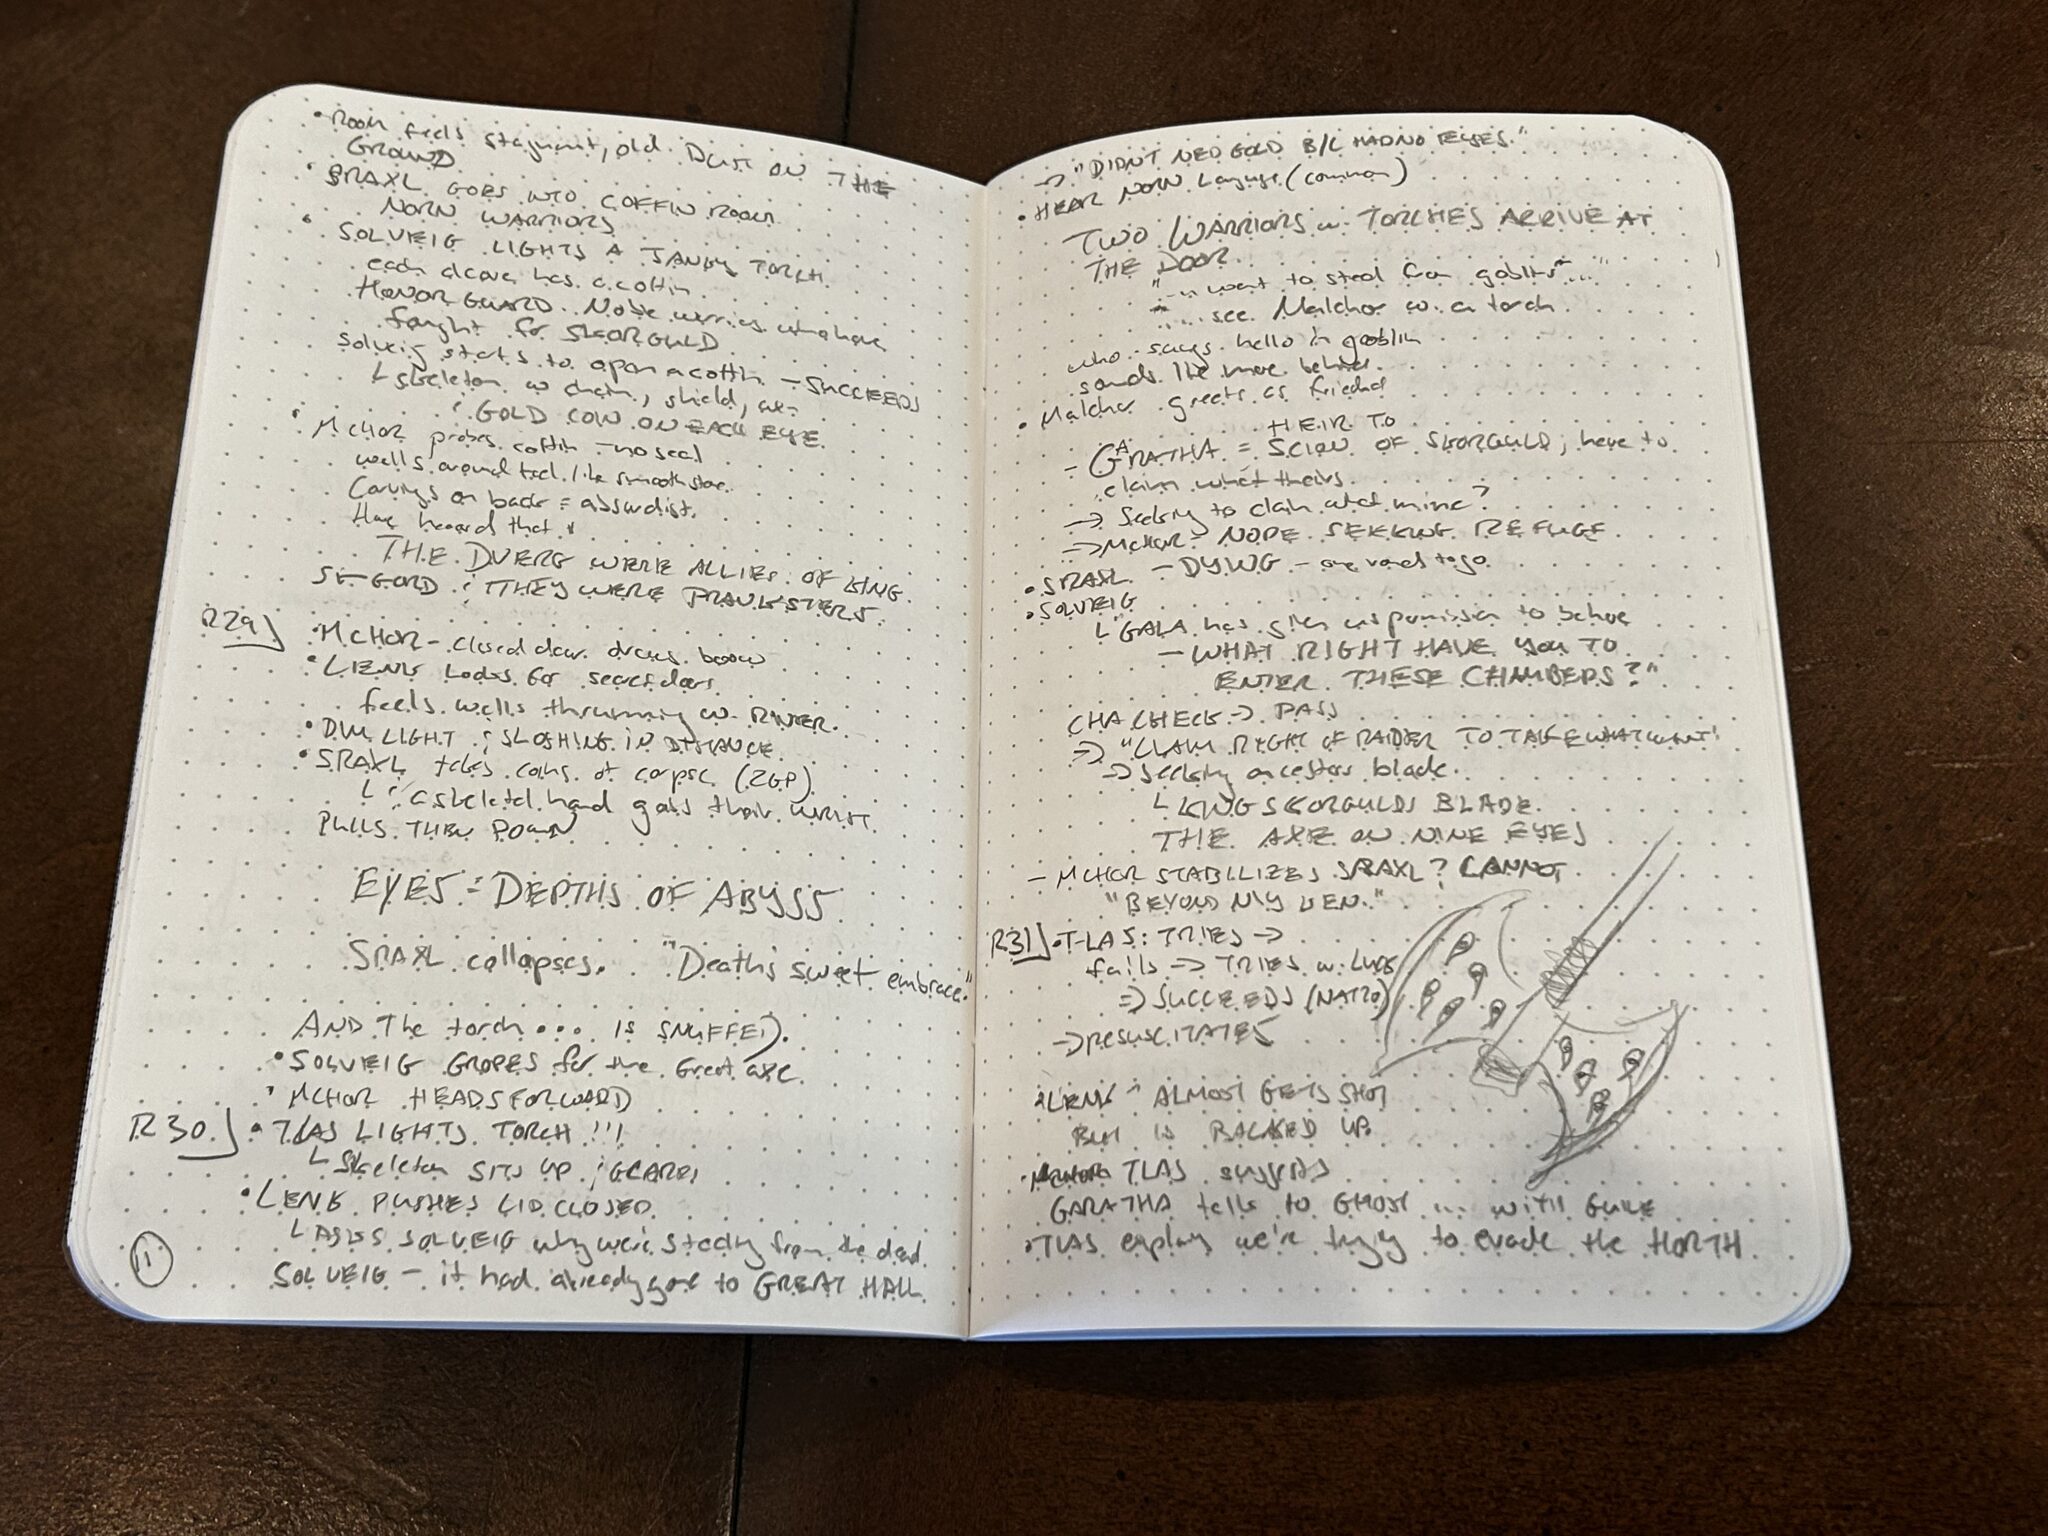 • Room feels stagnant, old. Dust on THE
GROUND
• SRAXL GOES INTO COFFIN ROOM
NORN WARRIORS
• SOLVEIG LIGHTS A JANKY TORCH
each alcove has a coffin.
HONOR GUARD. Noble warriors who have
fought for SKORGULD
Solveig starts to open a coffin - SUCCEEDS
└ skeleton w chain, shield, axe
; GOLD COIN ON EACH EYE.
• MCHOR probes coffin - no seal
walls around feel like smooth stone.
Carvings on back = absurdist.
Have heard that
THE DVERG WERE ALLIES OF KING
; THEY WERE PRANKSTERS.
R29) • MCHOR - closed door draws
• LENK Looks for secret doors
feels walls thrumming w.
• DIM LIGHT ; SLOSHING IN DISTANCE
• SRAXL takes coins of corpse (2GP)
└ ; a skeletal hand grabs their wrist.
PULLS THEM DOWN
EYES = DEPTHS OF ABYSS
SRAXL collapses. "Death's sweet embrace."
AND The torch ... is SNUFFED.
• SOLVEIG GROPES for the Great axe.
• MCHOR HEADS FORWARD
R30) • TLAS LIGHTS TORCH !!!
└ Skeleton SITS UP ;
• LENK PUSHES LID CLOSED
└ ASKS SOLVEIG why we're stealing from the dead
SOLVEIG - it had already gone to GREAT HALL
11
→ "DIDNT NEED GOLD B/C HAD NO EYES."
• HEAR NORN Language (common)
TWO WARRIORS w TORCHES ARRIVE AT
THE DOOR
"... want to steal from goblins ..."
".... see Malchor w a torch
who says hello in goblin
sounds like more behind.
• Malchor greets as friend
HEIR TO
- GARATHA = SCION OF SKORGULD; here to
claim what theirs.
→ Seeking to claim what mine?
→ MCHOR - NOPE SEKKING REFUGE
• SRAXL - DYING - one round to go
• SOLVEIG
└ "GALA has given us permission to
- WHAT RIGHT HAVE YOU TO
ENTER THESE CHAMBERS?"
CHA CHECK → PASS
→ "CLAIM RIGHT OF RAIDER TO TAKE WHAT WANT"
→ Seeking ancestors blade.
└ KING SKORGULDS BLADE.
THE AXE ON NINE EYES
- MCHOR STABILIZES SRAXL? CANNOT
"BEYOND MY KEN."
R31) • TLAS: TRIES →
fails → TRIES w Luck
→ SUCCEEDS (NAT20)
→ RESUSCITATES
• LENK - ALMOST GETS SHOT
BUT IS BACKED UP
• TLAS suggests
GARATHA talks to GHOST ... WITH GUILE
• TLAS explains we're trying to evade the